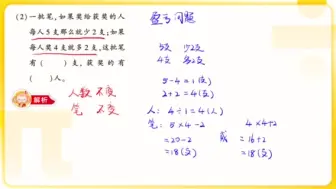 (2)一批笔,如果奖给获奖的人
每人5支那么就少2支;如果
每人奖4支就多2支,这批笔
有( )支,获奖的有
( )人。
解析
人数 不变
笔 不变
盈亏问题
5支 少2支
4支 多2支
5-4=1(支)
2+2=4(支)
人: 4÷1=4(人)
笔: 5×4-2
=20-2
=18(支)
或
4×4+2
=16+2
=18(支)